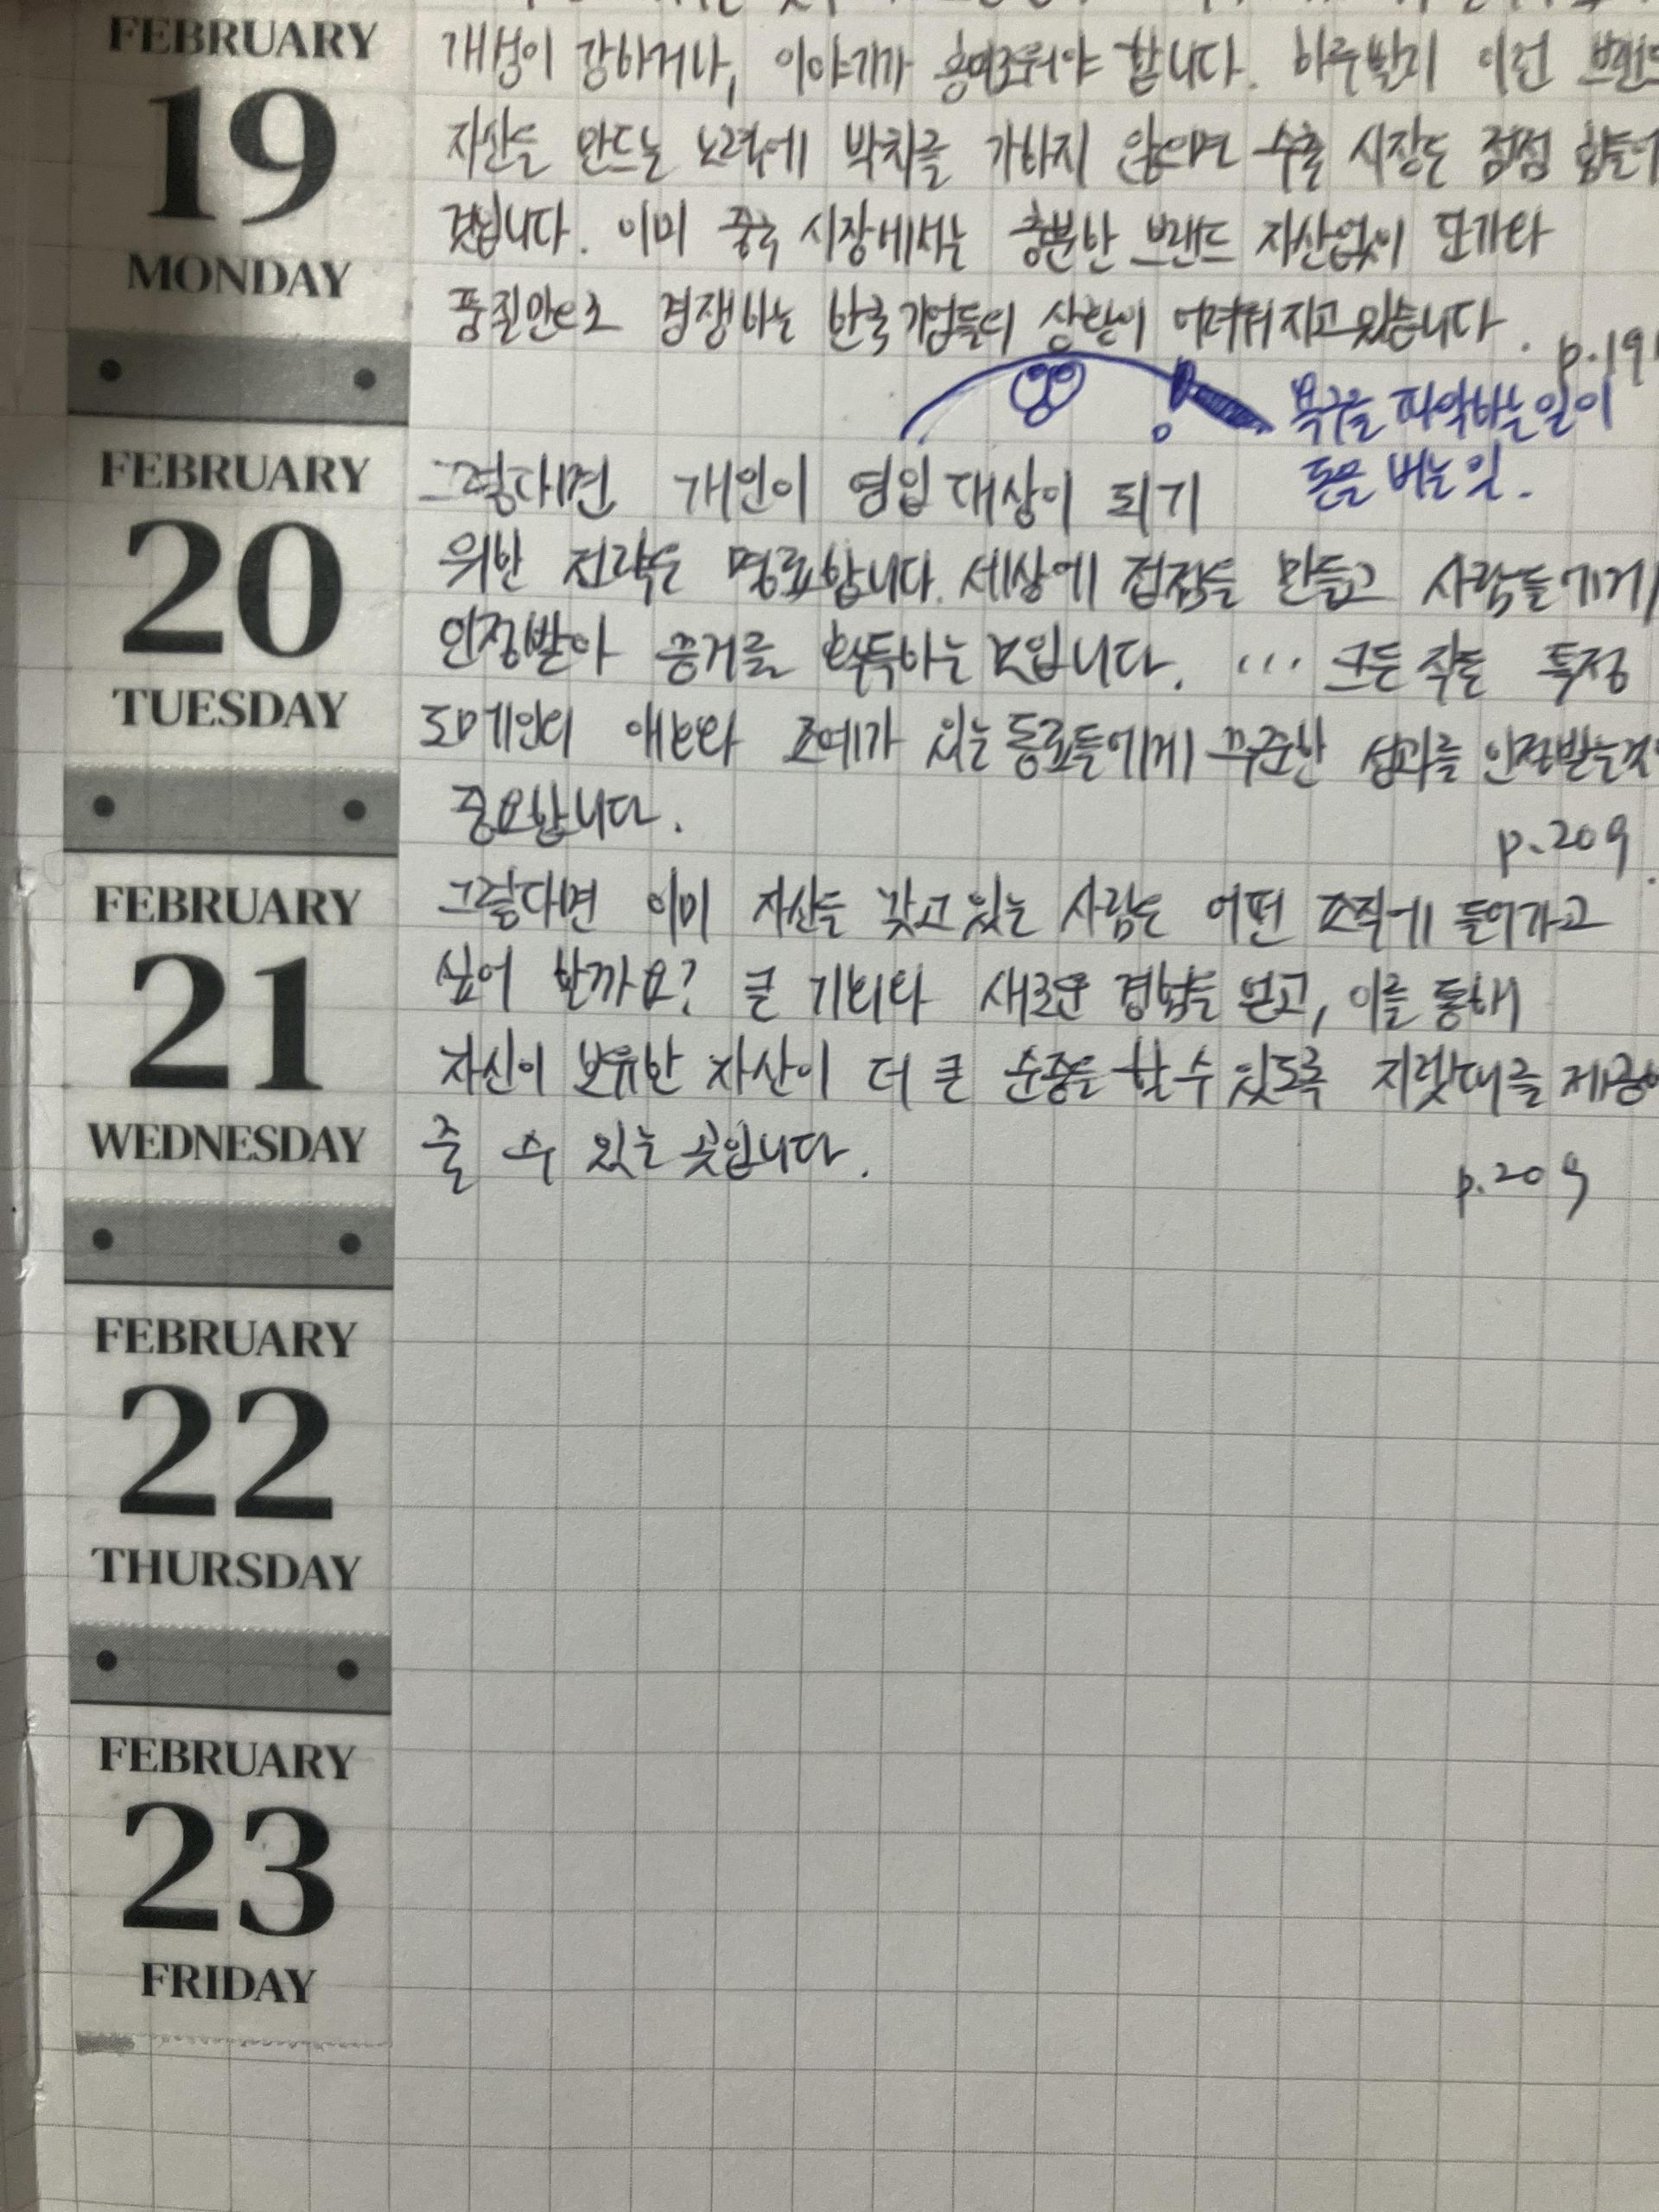 FEBRUARY
19
MONDAY
개성이 강하거나, 이야기가 흥미로워야 합니다. 하루빨리 이런 브랜드
자산을 만드는 노력에 박차를 가하지 않으면 수출 시장도 점점 힘들어
것입니다. 이미 중국 시장에서는 충분한 브랜드 자산없이 단가와
품질만으로 경쟁하는 한국 기업들의 상황이 어려워지고 있습니다.
p.19
욕구를 파악하는 일이
돈을 버는 일.
FEBRUARY
20
TUESDAY
그렇다면 개인이 영입 대상이 되기
위한 전략은 명료합니다. 세상에 접점을 만들고 사람들에게
인정받아 증거를 획득하는 것입니다. ... 크든 작든 특정
도메인의 애호와 조예가 있는 동료들에게 꾸준한 성과를 인정받는 것
중요합니다.
p.209.
FEBRUARY
21
WEDNESDAY
그렇다면 이미 자산을 갖고 있는 사람은 어떤 조직에 들어가고
싶어 할까요? 큰 기회와 새로운 경험을 얻고, 이를 통해
자신이 보유한 자산이 더 큰 순증을 할 수 있도록 지렛대를 제공해
줄 수 있는 곳입니다.
p.209
FEBRUARY
22
THURSDAY
FEBRUARY
23
FRIDAY